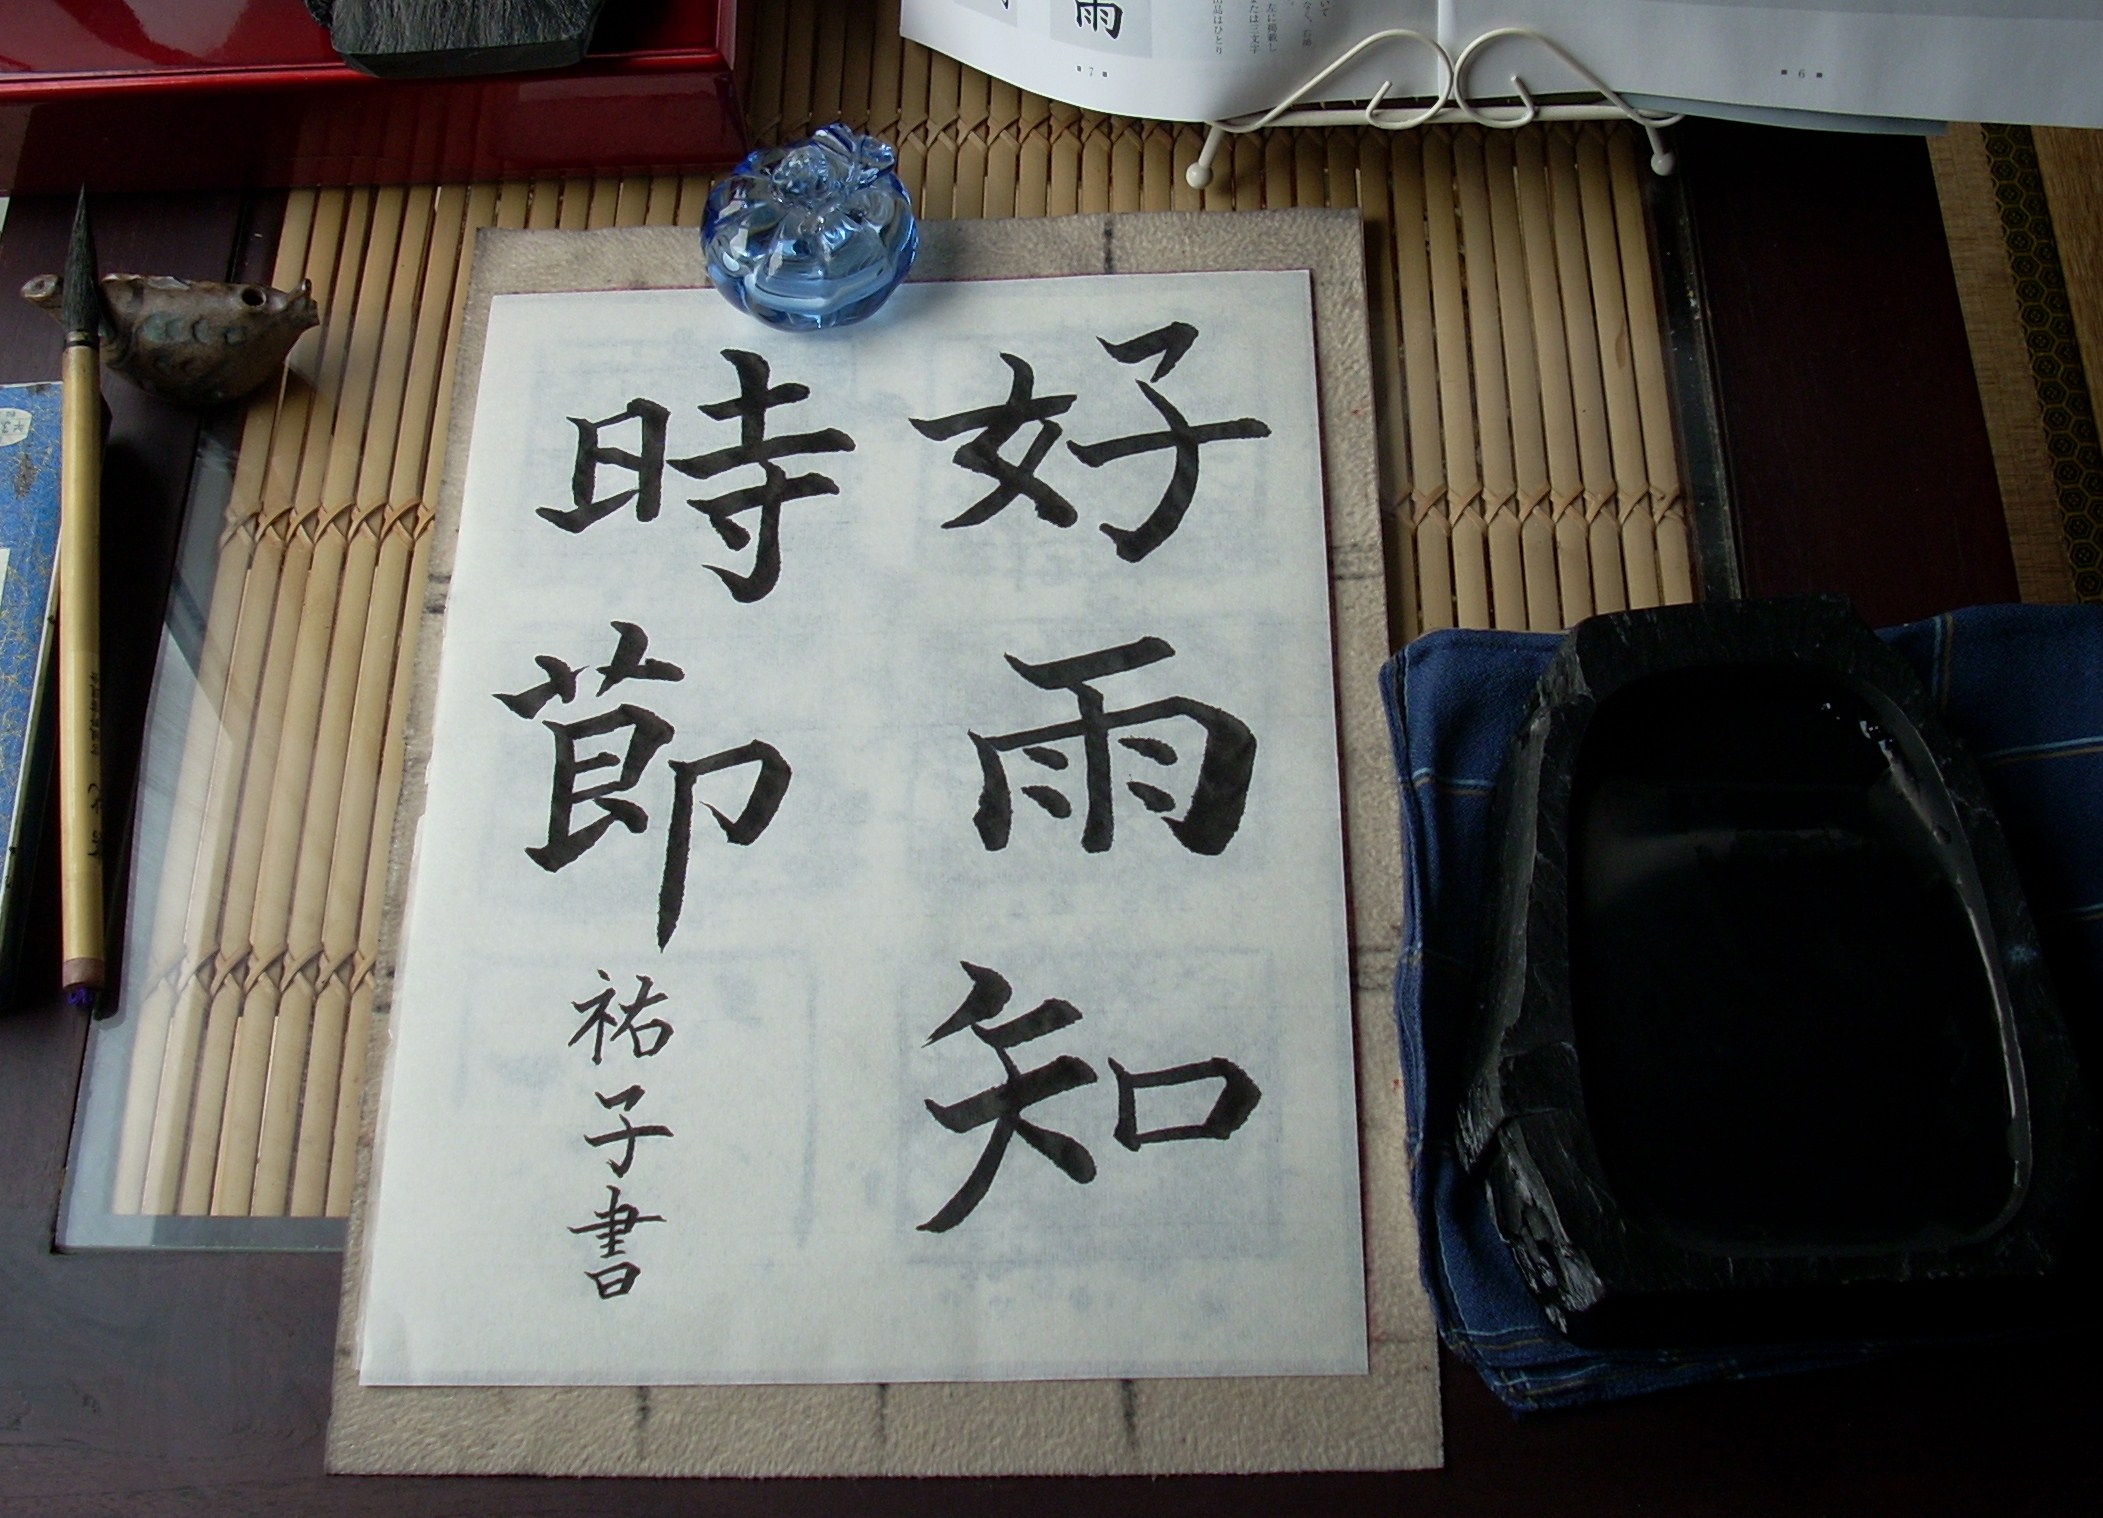 好雨知
時節
祐子書
雨
■ 7 ■
■ 6 ■